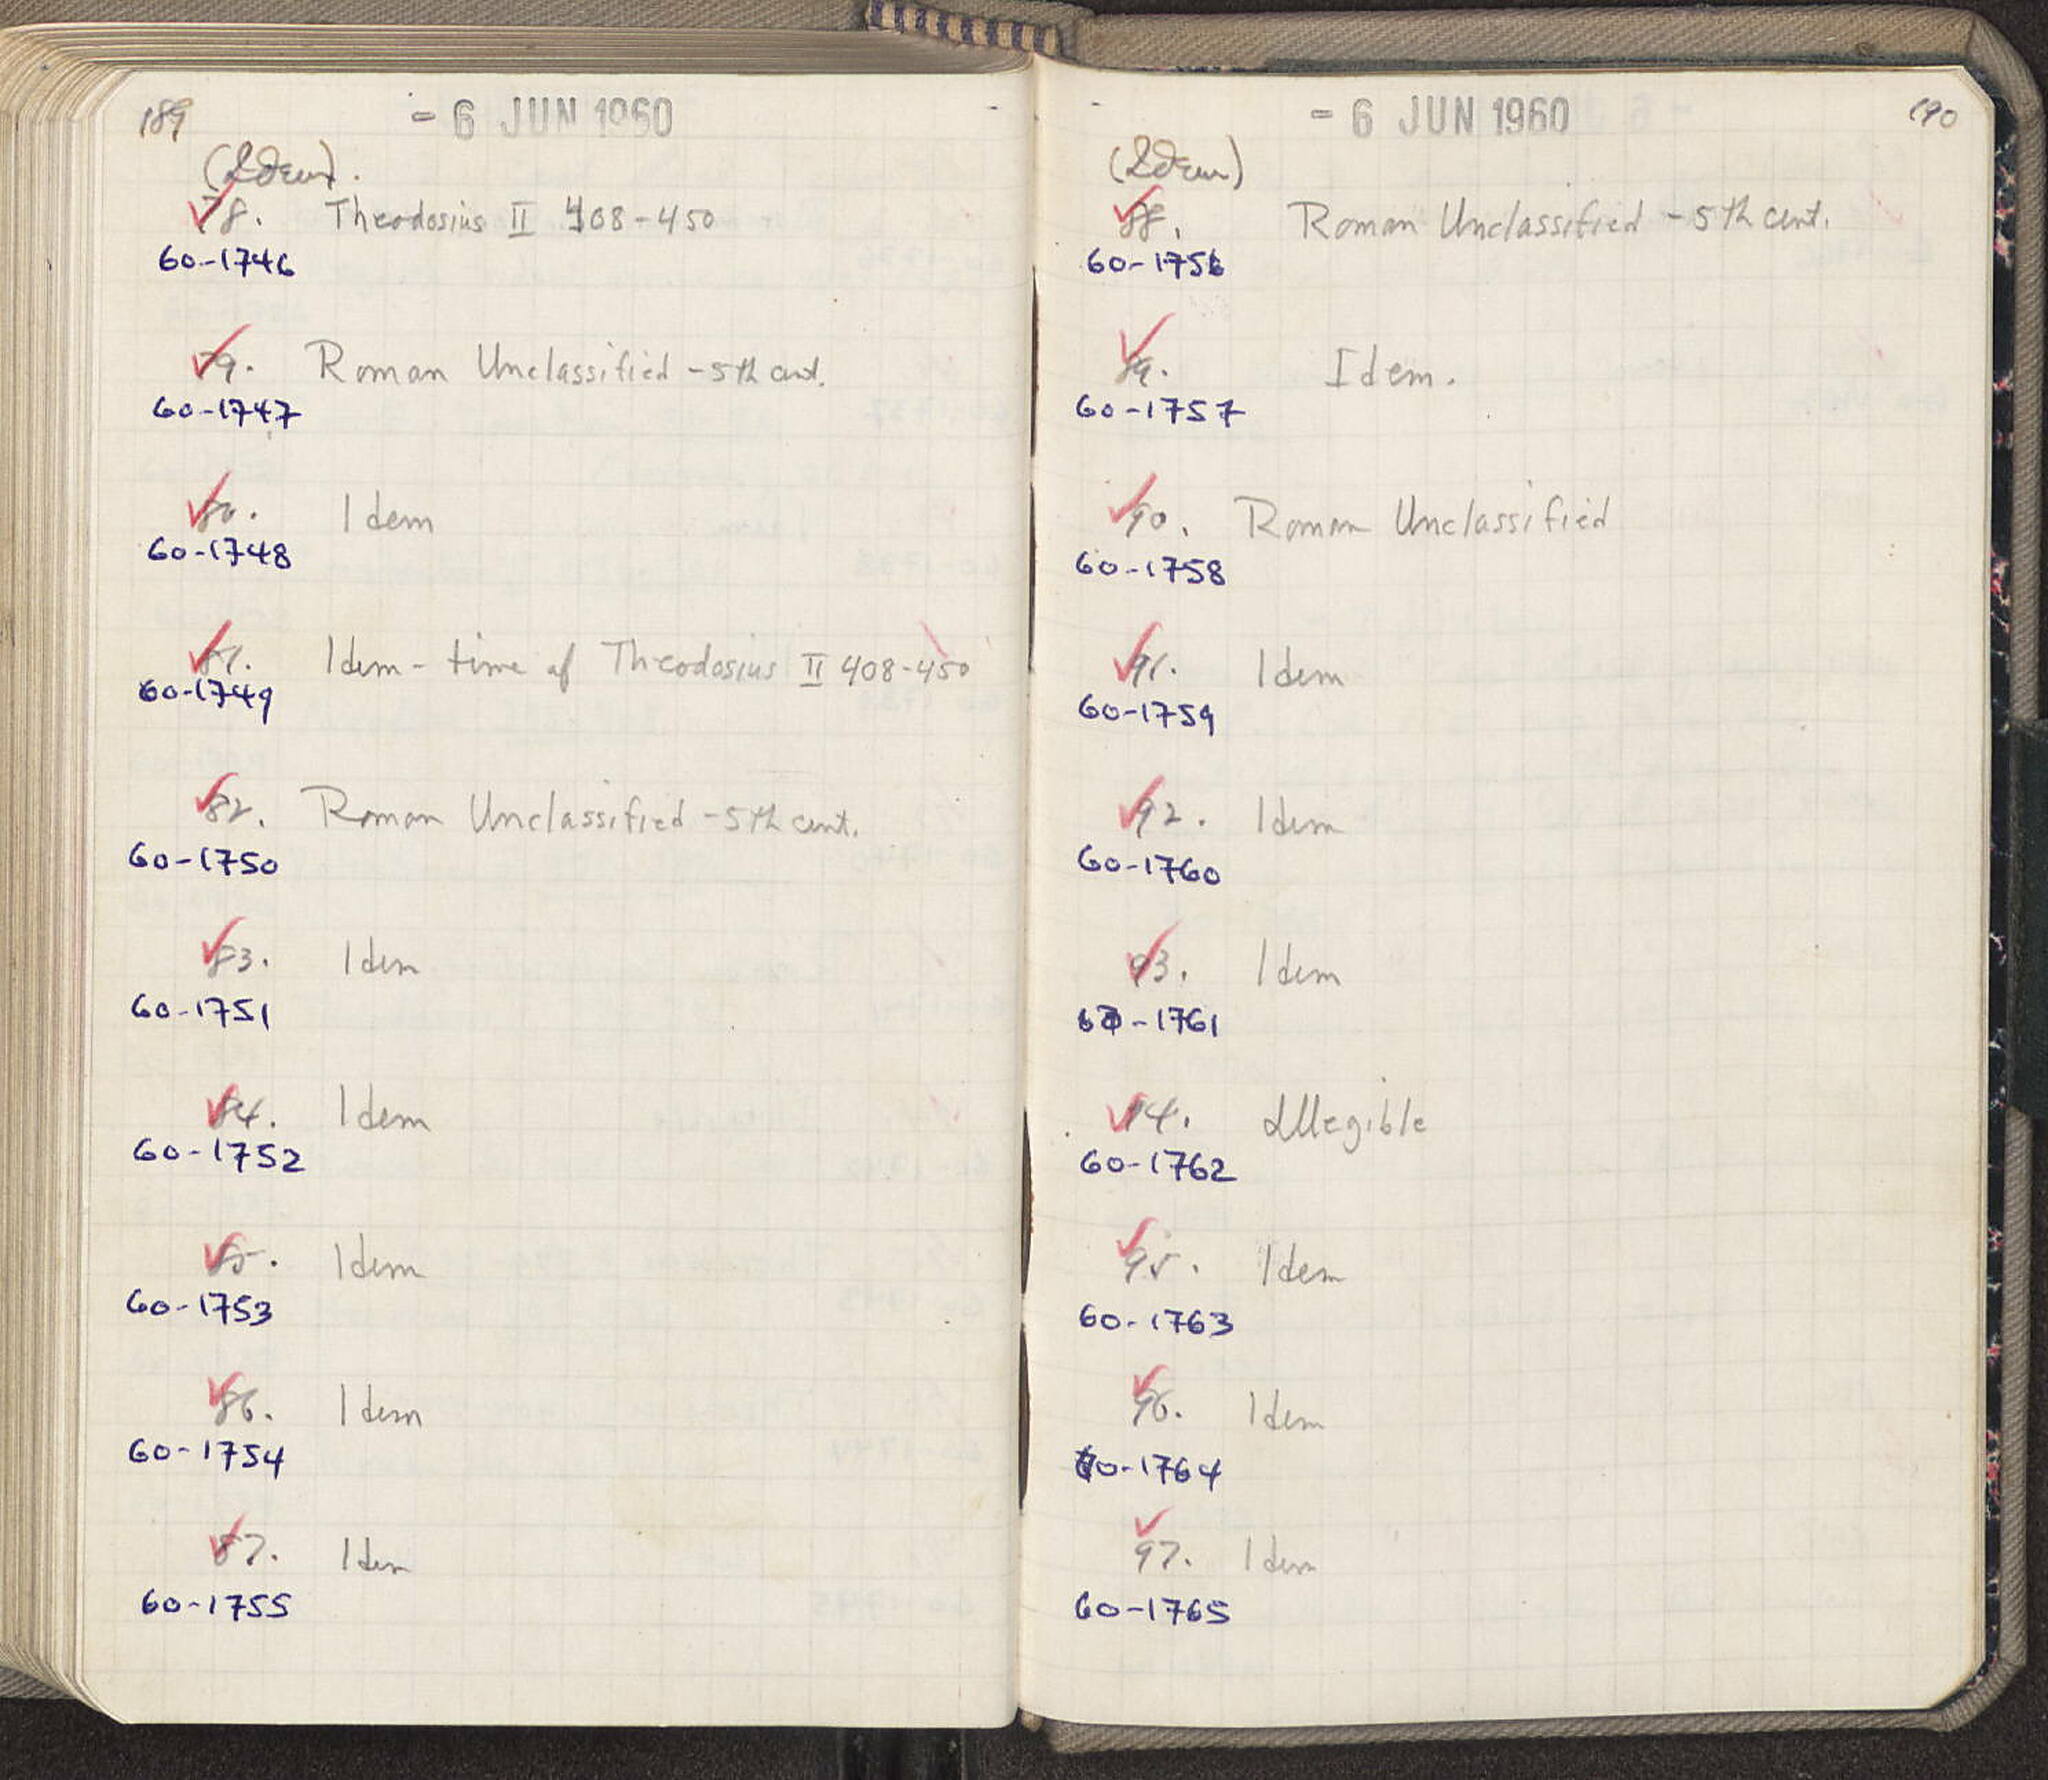 189
- 6 JUN 1960
(Idem).
78. Theodosius II 408-450
60-1746
79. Roman Unclassified - 5th cent.
60-1747
80. Idem
60-1748
81. Idem - time of Theodosius II 408-450
60-1749
82. Roman Unclassified - 5th cent.
60-1750
83. Idem
60-1751
84. Idem
60-1752
85. Idem
60-1753
86. Idem
60-1754
87. Idem
60-1755
- 6 JUN 1960
190
(Idem)
88. Roman Unclassified - 5th cent.
60-1756
89. Idem.
60-1757
90. Roman Unclassified
60-1758
91. Idem
60-1759
92. Idem
60-1760
93. Idem
60-1761
94. Illegible
60-1762
95. Idem
60-1763
96. Idem
60-1764
97. Idem
60-1765